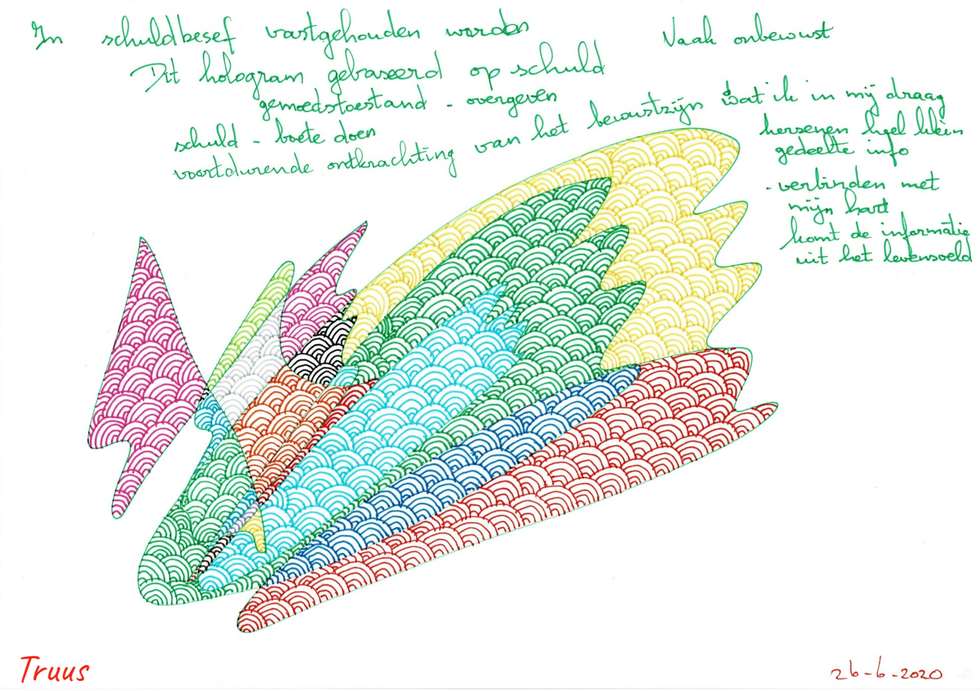 In schuldbesef vastgehouden worden
Vaak onbewust
Dit hologram gebaseerd op schuld
gemoedstoestand - overgeven
schuld - boete doen
voortdurende ontkrachting van het bewustzijn
wat ik in mij draag
hersenen heel klein
gedeelte info
- verbinden met
mijn hart
komt de informatie
uit het levensveld
Truus
26-6-2020